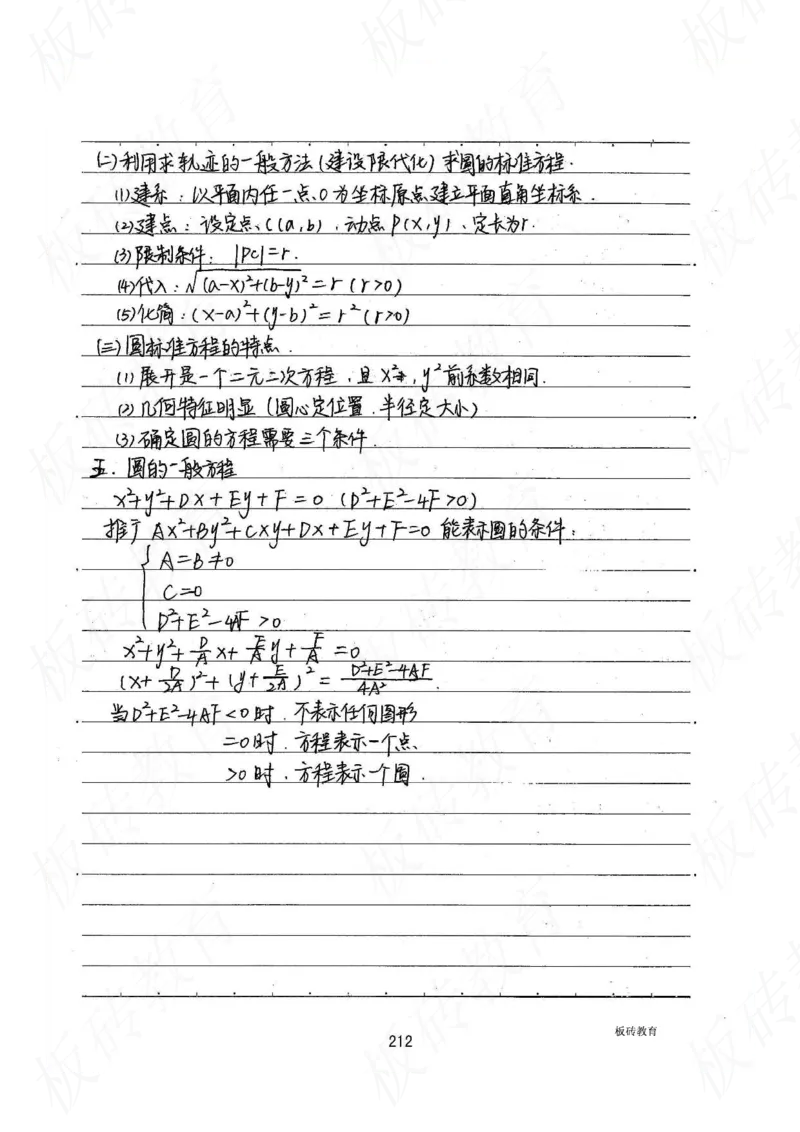 (二)利用求轨迹的一般方法(建设限代化)求圆的标准方程.
(1)建系:以平面内任一点、O为坐标原点建立平面直角坐标系.
(2)建点:设定点、C(a,b).动点P(x,y)、定长为r.
(3)限制条件: |PC|=r.
(4)代入:√(a-x)²+(b-y)²=r (r>0)
(5)化简:(x-a)²+(y-b)²=r²(r>0)
(三)圆标准方程的特点.
(1)展开是一个二元二次方程.且x², y²前系数相同.
(2)几何特征明显(圆心定位置.半径定大小)
(3)确定圆的方程需要三个条件.
五.圆的一般方程
x²+y²+Dx+Ey+F=0 (D²+E²-4F>0)
推广Ax²+By²+Cxy+Dx+Ey+F=0 能表示圆的条件:
{ A=B≠0
C=0
D²+E²-4AF>0
x²+y²+D/A x+E/A y+F/A=0
(x+D/2A)²+(y+E/2A)²=D²+E²-4AF/4A².
当D²+E²-4AF<0时.不表示任何图形
=0时.方程表示一个点、
>0时.方程表示一个圆.
板砖教育
212